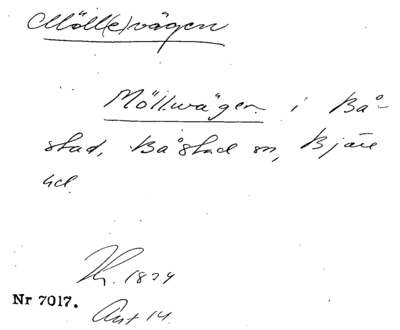 Möll(e)vägen
Möllwägen i Bå-
stad, Båstad sn, Bjäre
hd
1874
Nr 7017.
Ant 14.